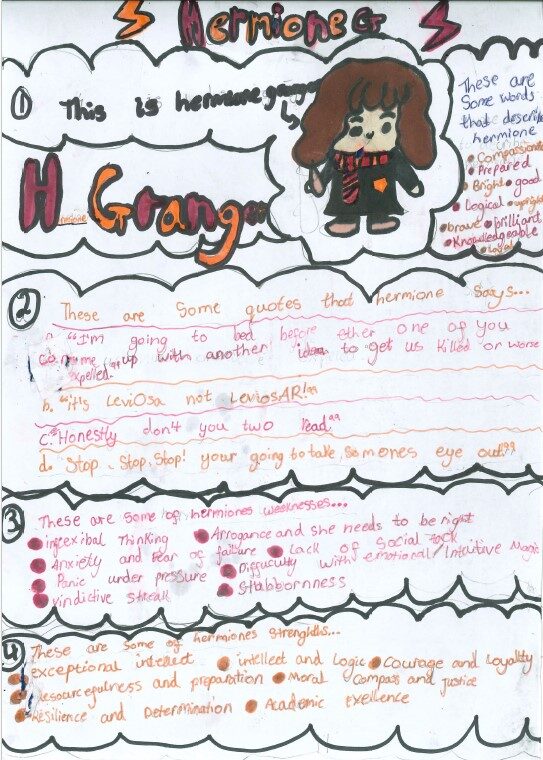 Hermione G
1 This is hermione granger
H Grang
ermione
These are
Some words
that describe
hermione
Compassionate
Prepared
Bright good
Logical upright
brave brilliant
Knowledgeable
Loyal
2 These are Some quotes that hermione says...
a. "I'm going to bed before ether one of you
Come up with another idea to get us killed or worse
expelled."
b. "it's LeviOsa not LeviosAR!"
C. "Honestly don't you two read."
d. Stop, Stop, Stop! your going to take, Somones eye out"
3 These are some of hermiones weaknesses...
infexibal Thinking
Arrogance and she needs to be right
Anxiety and Fear of failure
Lack of Social tack
Panic under pressure
Difficulty with emotional/Intuitive Magic
vindictive streak
Stubbornness
4 These are some of hermiones strenghths...
exceptional intelect
intellect and Logic
Courage and Loyality
Resourcefulness and preparation
Moral Compass and Justice
Resilience and Determination
Academic Exellence